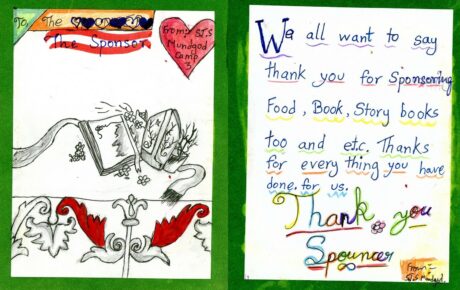 To, The
The Sponsor
From: S.T.S
Mundgod
Camp
3
We all want to say
thank you for Sponsoring
Food, Book, Story books
too and etc. Thanks
for every thing you have
done. for us.
Thank you
Spouncer
From:-
S.T.S Mundgod.